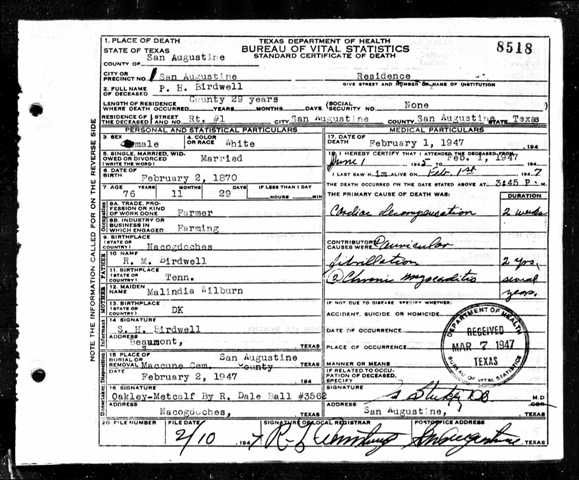 1. PLACE OF DEATH
STATE OF TEXAS
COUNTY OF San Augustine
TEXAS DEPARTMENT OF HEALTH
BUREAU OF VITAL STATISTICS
STANDARD CERTIFICATE OF DEATH
8518
CITY OR PRECINCT NO. San Augustine
Residence
GIVE STREET AND NUMBER OR NAME OF INSTITUTION
2. FULL NAME OF DECEASED P. H. Birdwell
LENGTH OF RESIDENCE WHERE DEATH OCCURRED County 29 years YEARS MONTHS DAYS
(SOCIAL SECURITY NO. None
RESIDENCE OF THE DECEASED STREET AND NO. Rt. #1 CITY San Augustine COUNTY San Augustine STATE Texas
PERSONAL AND STATISTICAL PARTICULARS
3. SEX male
4. COLOR OR RACE White
5. SINGLE, MARRIED, WIDOWED OR DIVORCED (WRITE THE WORD) Married
6. DATE OF BIRTH February 2, 1870
7. AGE YEARS 76 MONTHS 11 DAYS 29 IF LESS THAN 1 DAY HOURS MIN
8A. TRADE, PROFESSION OR KIND OF WORK DONE Farmer
8B. INDUSTRY OR BUSINESS IN WHICH ENGAGED Farming
9. BIRTHPLACE (STATE OR COUNTRY) Nacogdoches
FATHER
10. NAME R. M. Birdwell
11. BIRTHPLACE (STATE OR COUNTRY) Tenn.
MOTHER
12. MAIDEN NAME Malindia Wilburn
13. BIRTHPLACE (STATE OR COUNTRY) DK
14. SIGNATURE S. H. Birdwell
ADDRESS Beaumont, TEXAS
15. PLACE OF BURIAL OR REMOVAL San Augustine
Maccune Cem. County TEXAS
DATE February 2, 1947
16. SIGNATURE Oakley-Metcalf By R. Dale Ball #3562
ADDRESS Nacogdoches, TEXAS
MEDICAL PARTICULARS
17. DATE OF DEATH February 1, 1947
18. I HEREBY CERTIFY THAT I ATTENDED THE DECEASED FROM
June 1 1945 TO Feb. 1, 1947
I LAST SAW HIM ALIVE ON Feb. 1st 1947
THE DEATH OCCURRED ON THE DATE STATED ABOVE AT 3:45 P. M.
DURATION
Cardiac decompensation 2 weeks
CONTRIBUTORY CAUSES WERE: Auricular
fibrillation 2 yrs.
(2) Chronic myocarditis several years.
IF NOT DUE TO DISEASE, SPECIFY WHETHER:
ACCIDENT, SUICIDE OR HOMICIDE
DATE OF OCCURRENCE
PLACE OF OCCURRENCE
MANNER OR MEANS
IF RELATED TO OCCUPATION OF DECEASED, SPECIFY
DEPARTMENT OF HEALTH
RECEIVED
MAR 7 1947
TEXAS
BUREAU OF VITAL STATISTICS
SIGNATURE M.D.
ADDRESS San Augustine, TEXAS
20. FILE NUMBER
FILE DATE 2/10 1947
SIGNATURE OF LOCAL REGISTRAR
POSTOFFICE ADDRESS San Augustine TEXAS
NOTE THE INFORMATION CALLED FOR ON THE REVERSE SIDE